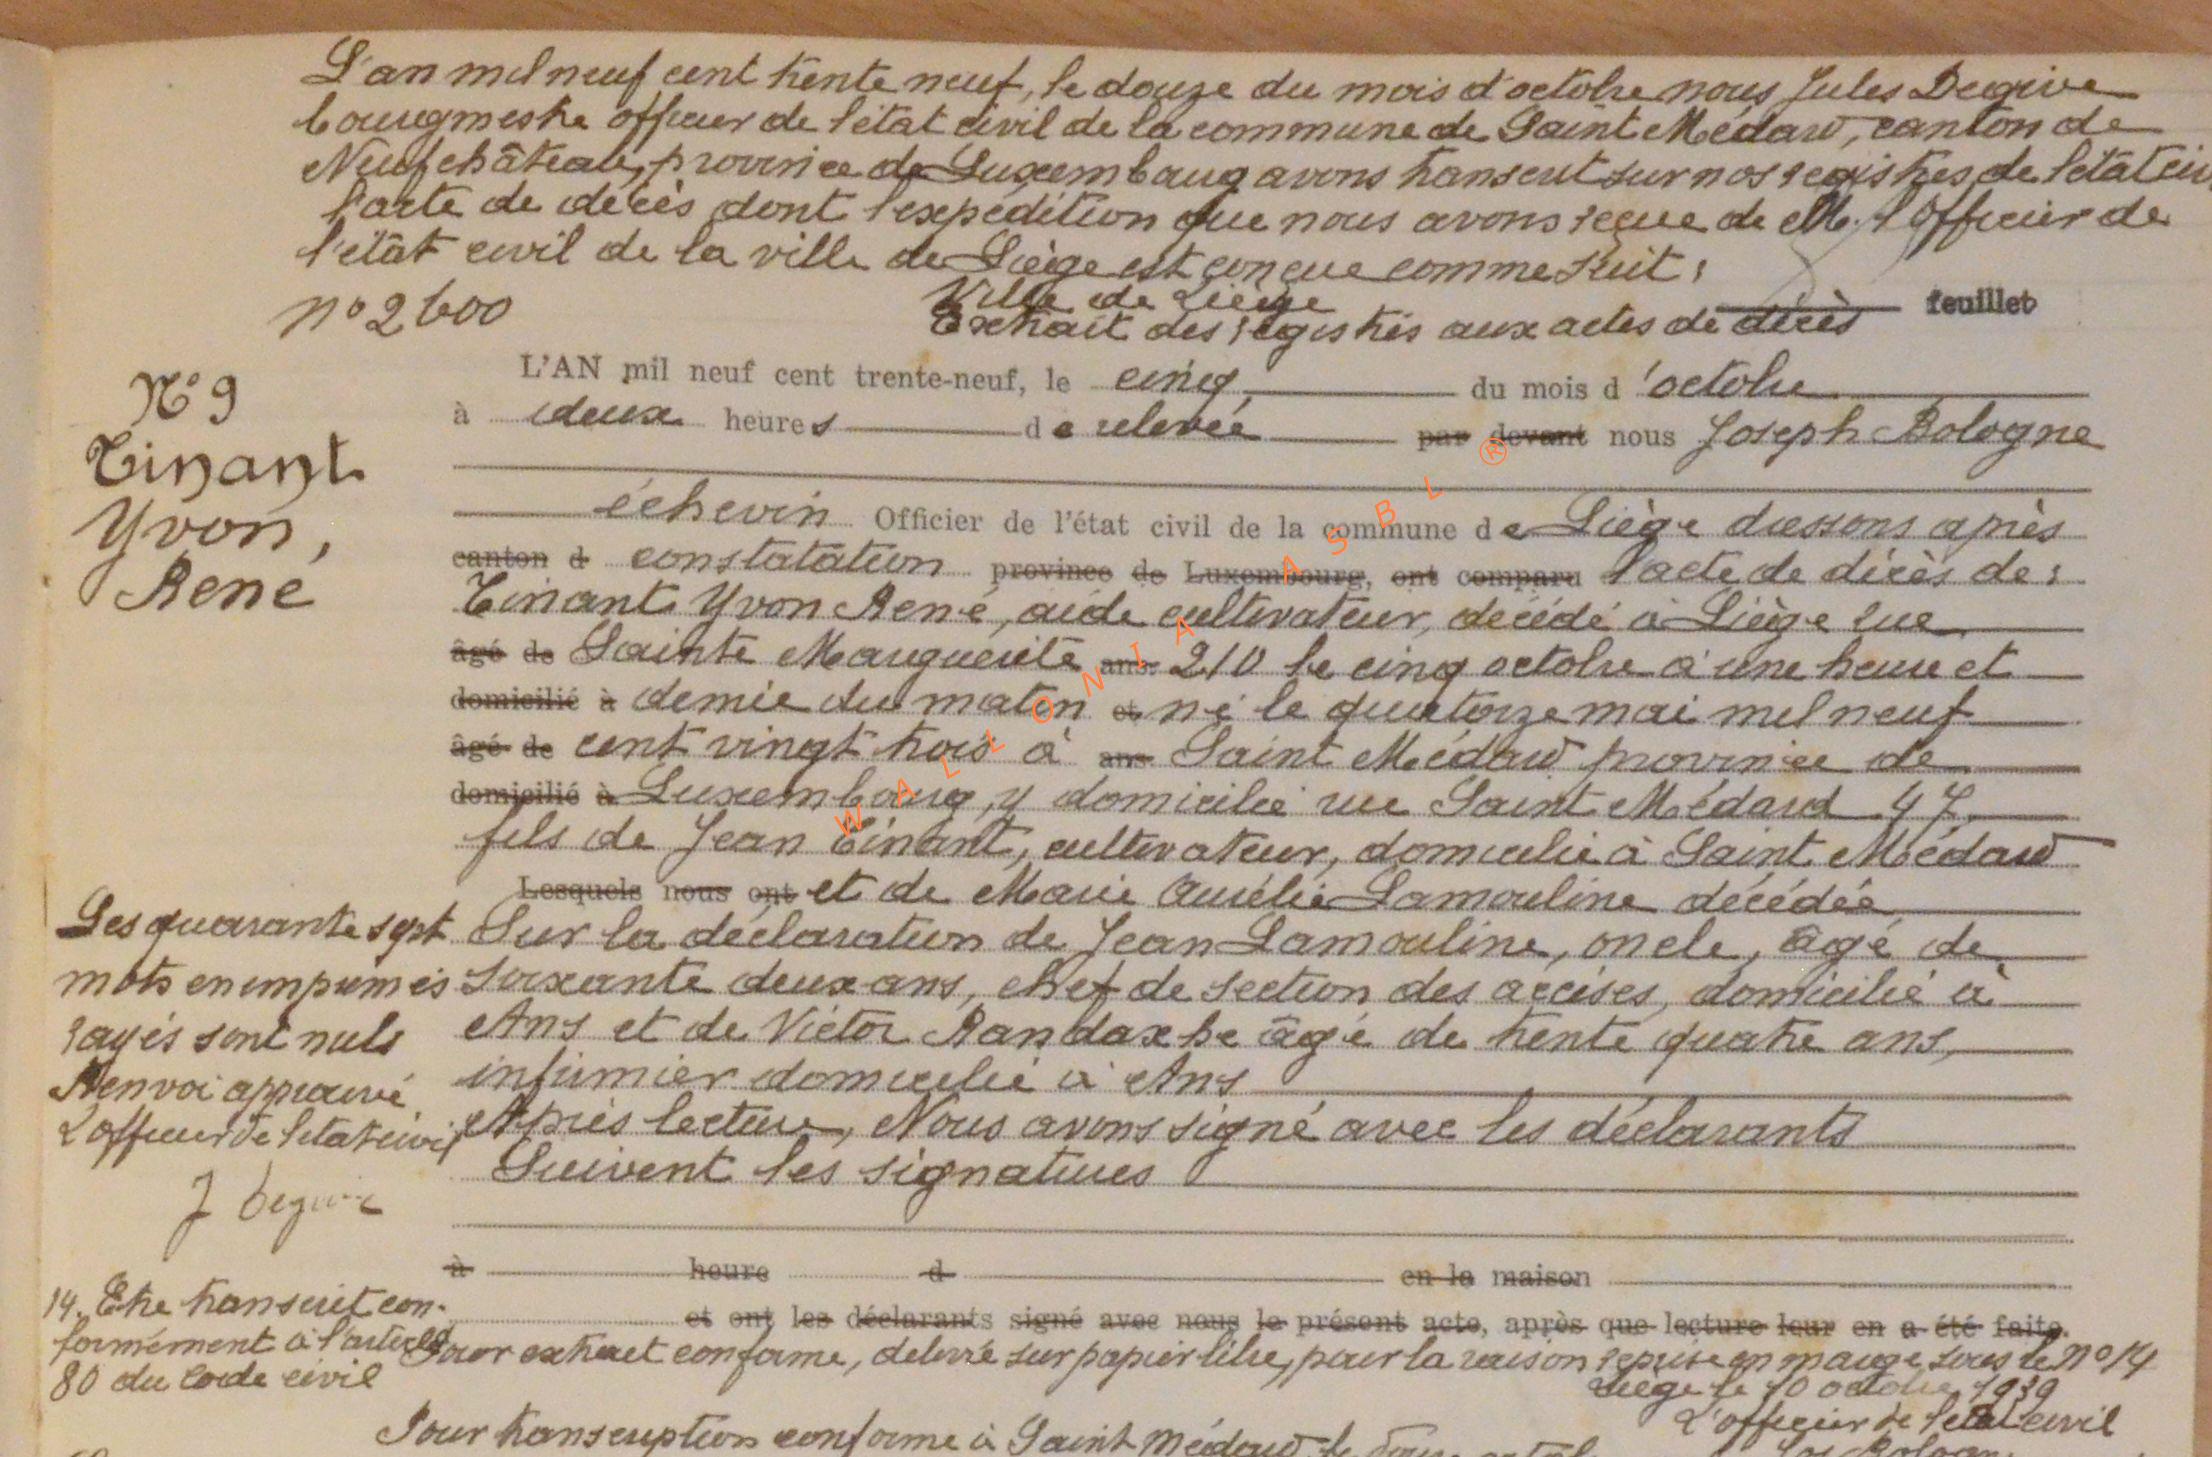 L'an mil neuf cent trente neuf, le douze du mois d'octobre nous Jules Degive
bourgmestre officier de l'état civil de la commune de Saint Médard, canton de
Neufchâteau, province de Luxembourg avons transcrit sur nos registres de l'état civ
l'acte de décès dont l'expédition que nous avons reçue de M. l'Officier de
l'état civil de la ville de Liège est conçue comme suit :
n° 2600
Ville de Liège
feuillet
Extrait des registres aux actes de décès
N° 9
Tinant
Yvon,
René
L'AN mil neuf cent trente-neuf, le cinq du mois d'octobre
à deux heures de relevée par devant nous Joseph Bologne
échevin Officier de l'état civil de la commune de Liège dressons après
canton d constatation province de Luxembourg, ont comparu l'acte de décès de :
Tinant Yvon René, aide cultivateur, décédé à Liège rue
âgé de Sainte Marguerite ans 210 le cinq octobre à une heure et
domicilié à demie du matin et né le quatorze mai mil neuf
âgé de cent vingt trois à ans Saint Médard province de
domicilié à Luxembourg, y domicilié rue Saint Médard 47
fils de Jean Tinant, cultivateur, domicilié à Saint Médard
Lesquels nous ont et de Marie Aurélie Lamouline décédée
Sur la déclaration de Jean Lamouline, oncle, âgé de
soixante deux ans, chef de section des accises, domicilié à
Ans et de Victor Randaxhe âgé de trente quatre ans,
infirmier domicilié à Ans
Après lecture, Nous avons signé avec les déclarants
Suivent les signatures
Les quarante sept
mots en imprimés
rayés sont nuls
Renvoi approuvé
L'officier de l'état civil
J Degive
à heure d en la maison
et ont les déclarants signé avec nous le présent acte, après que lecture leur en a été faite.
14. Etre transcrit con-
formément à l'article
80 du Code civil
Pour extrait conforme, délivré sur papier libre, pour la raison reprise en marge sous le n° 14
Liège le 10 octobre 1939
L'officier de l'état civil
Pour transcription conforme à Saint Médard le douze
Jos Bologne
WALLONIA ASBL ®